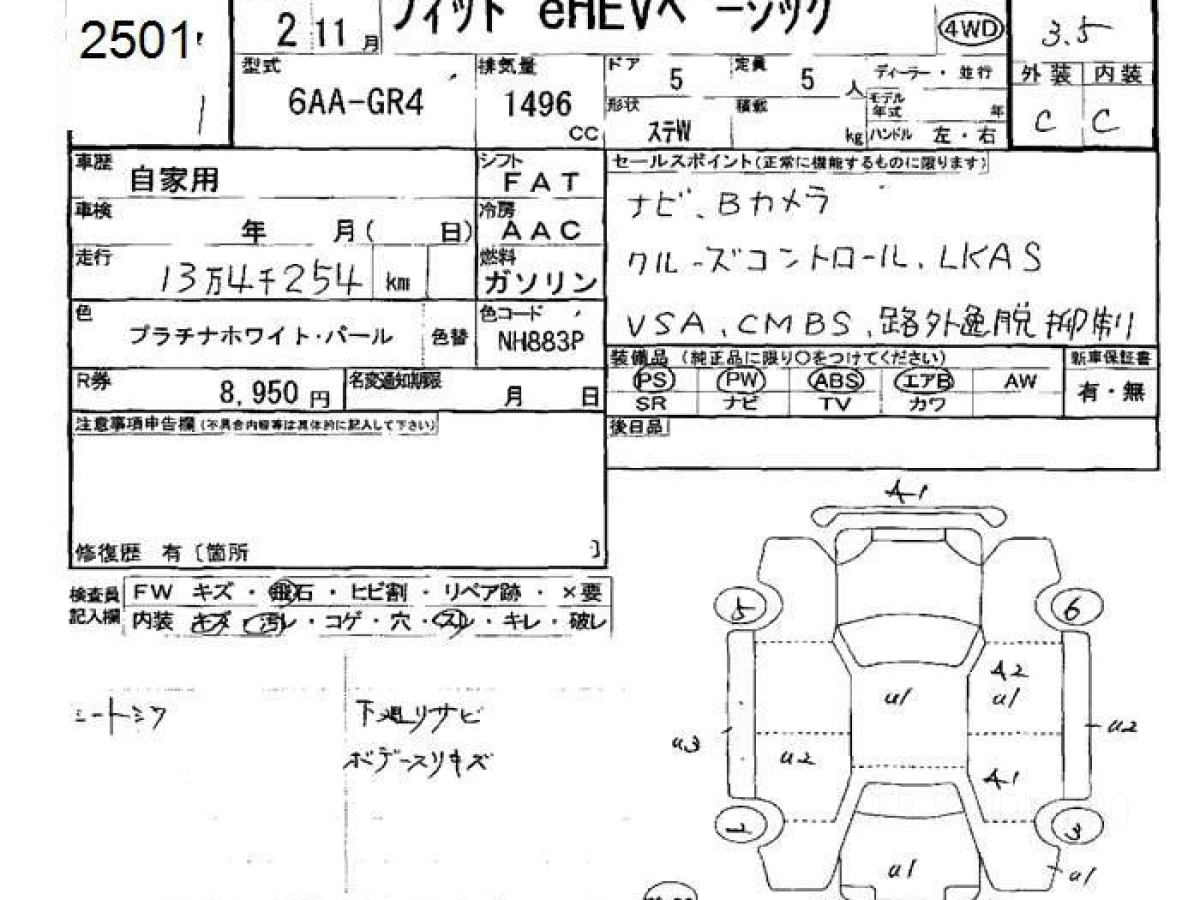 2501
2 11 月
フィット eHEVベーシック
4WD
3.5
型式
6AA-GR4
排気量
1496
CC
ドア 5
定員 5 人
ディーラー・並行
形状
ステW
積載
kg
モデル年式 年
ハンドル 左・右
外装 内装
C C
車歴
自家用
シフト
FAT
車検
年 月( 日)
冷房
AAC
走行
13万4千254 km
燃料
ガソリン
色
プラチナホワイト・パール
色替
色コード
NH883P
R券
8,950 円
名変通知期限
月 日
セールスポイント(正常に機能するものに限ります)
ナビ、Bカメラ
クルーズコントロール、LKAS
VSA、CMBS、路外逸脱抑制
装備品 (純正品に限り○をつけてください)
新車保証書
PS PW ABS エアB AW
SR ナビ TV カワ
有・無
後日品
注意事項申告欄(不具合内容等は具体的に記入して下さい)
修復歴 有〔箇所 〕
検査員記入欄
FW キズ・飛石・ヒビ割・リペア跡・×要
内装 キズ・汚レ・コゲ・穴・スレ・キレ・破レ
シートシワ
下廻りサビ
ボデースリキズ
A1
5
6
A2
u1
u1
u2
u3
u2
A1
3
u1
u1